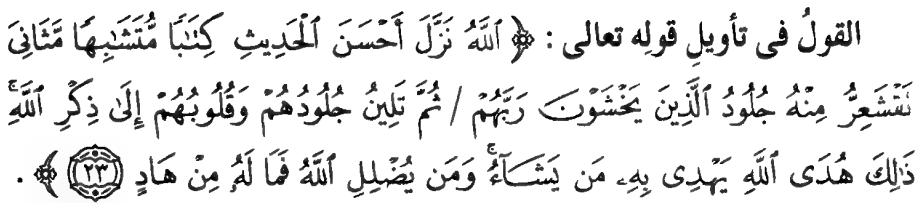 القولُ فى تأويلِ قولِه تعالى : ﴿ ٱللَّهُ نَزَّلَ أَحْسَنَ ٱلْحَدِيثِ كِتَٰبًا مُّتَشَٰبِهًا مَّثَانِىَ
تَقْشَعِرُّ مِنْهُ جُلُودُ ٱلَّذِينَ يَخْشَوْنَ رَبَّهُمْ / ثُمَّ تَلِينُ جُلُودُهُمْ وَقُلُوبُهُمْ إِلَىٰ ذِكْرِ ٱللَّهِۚ
ذَٰلِكَ هُدَى ٱللَّهِ يَهْدِى بِهِۦ مَن يَشَآءُۚ وَمَن يُضْلِلِ ٱللَّهُ فَمَا لَهُۥ مِنْ هَادٍ ٢٣ ﴾ .